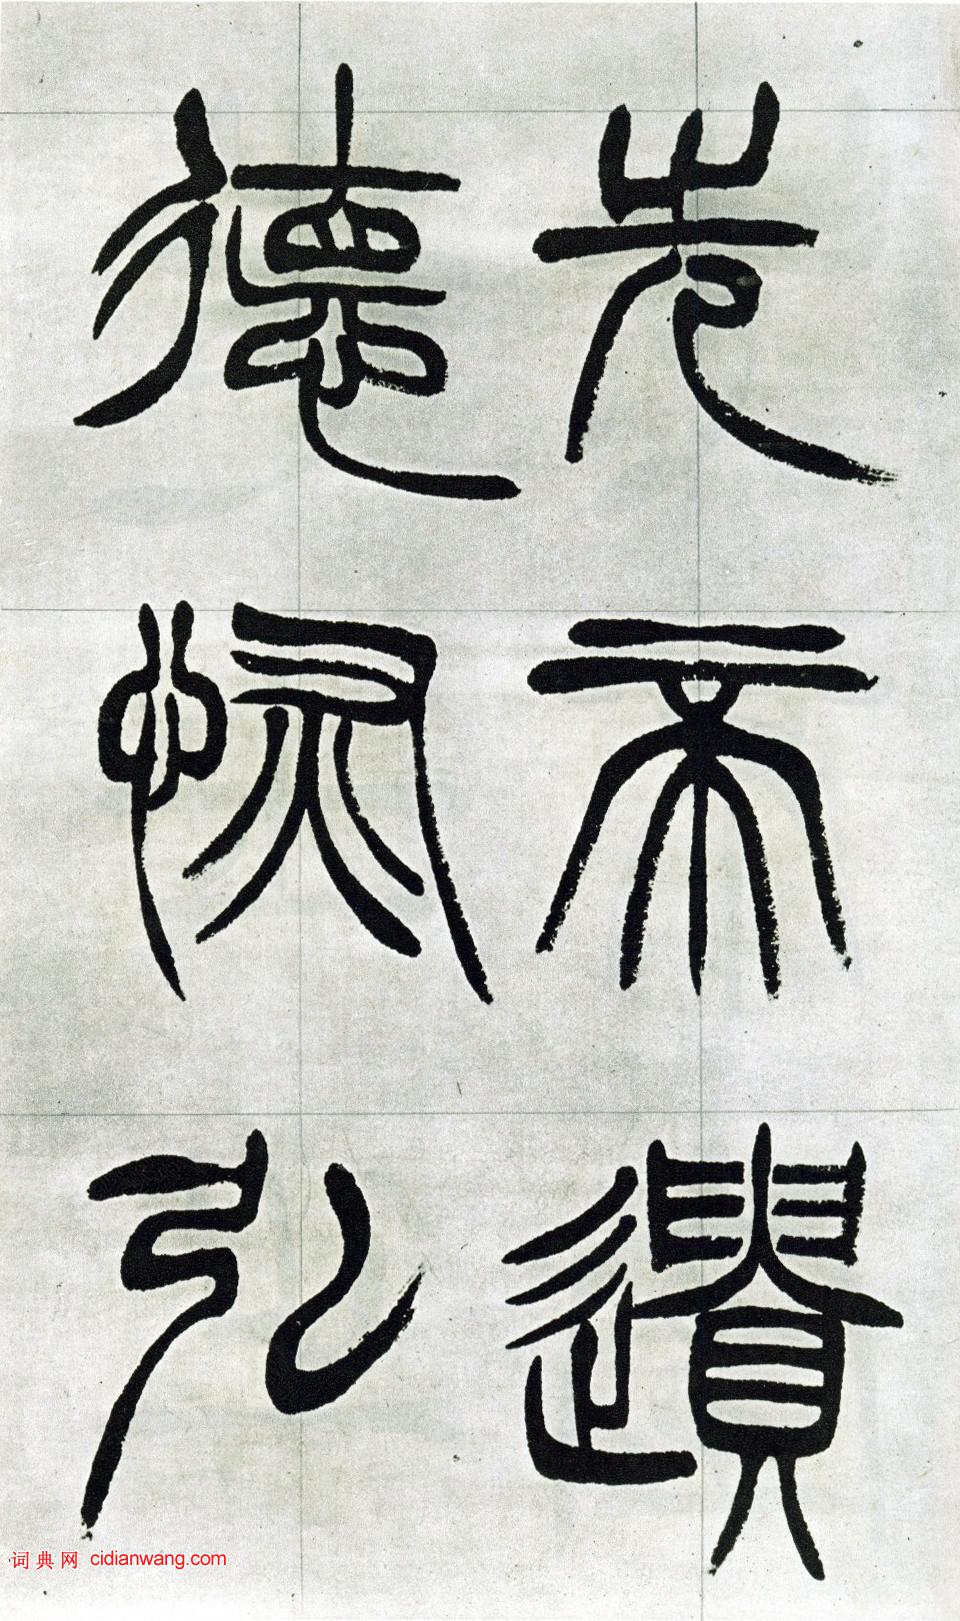 先帝遺
德恢弘
词典网 cidianwang.com